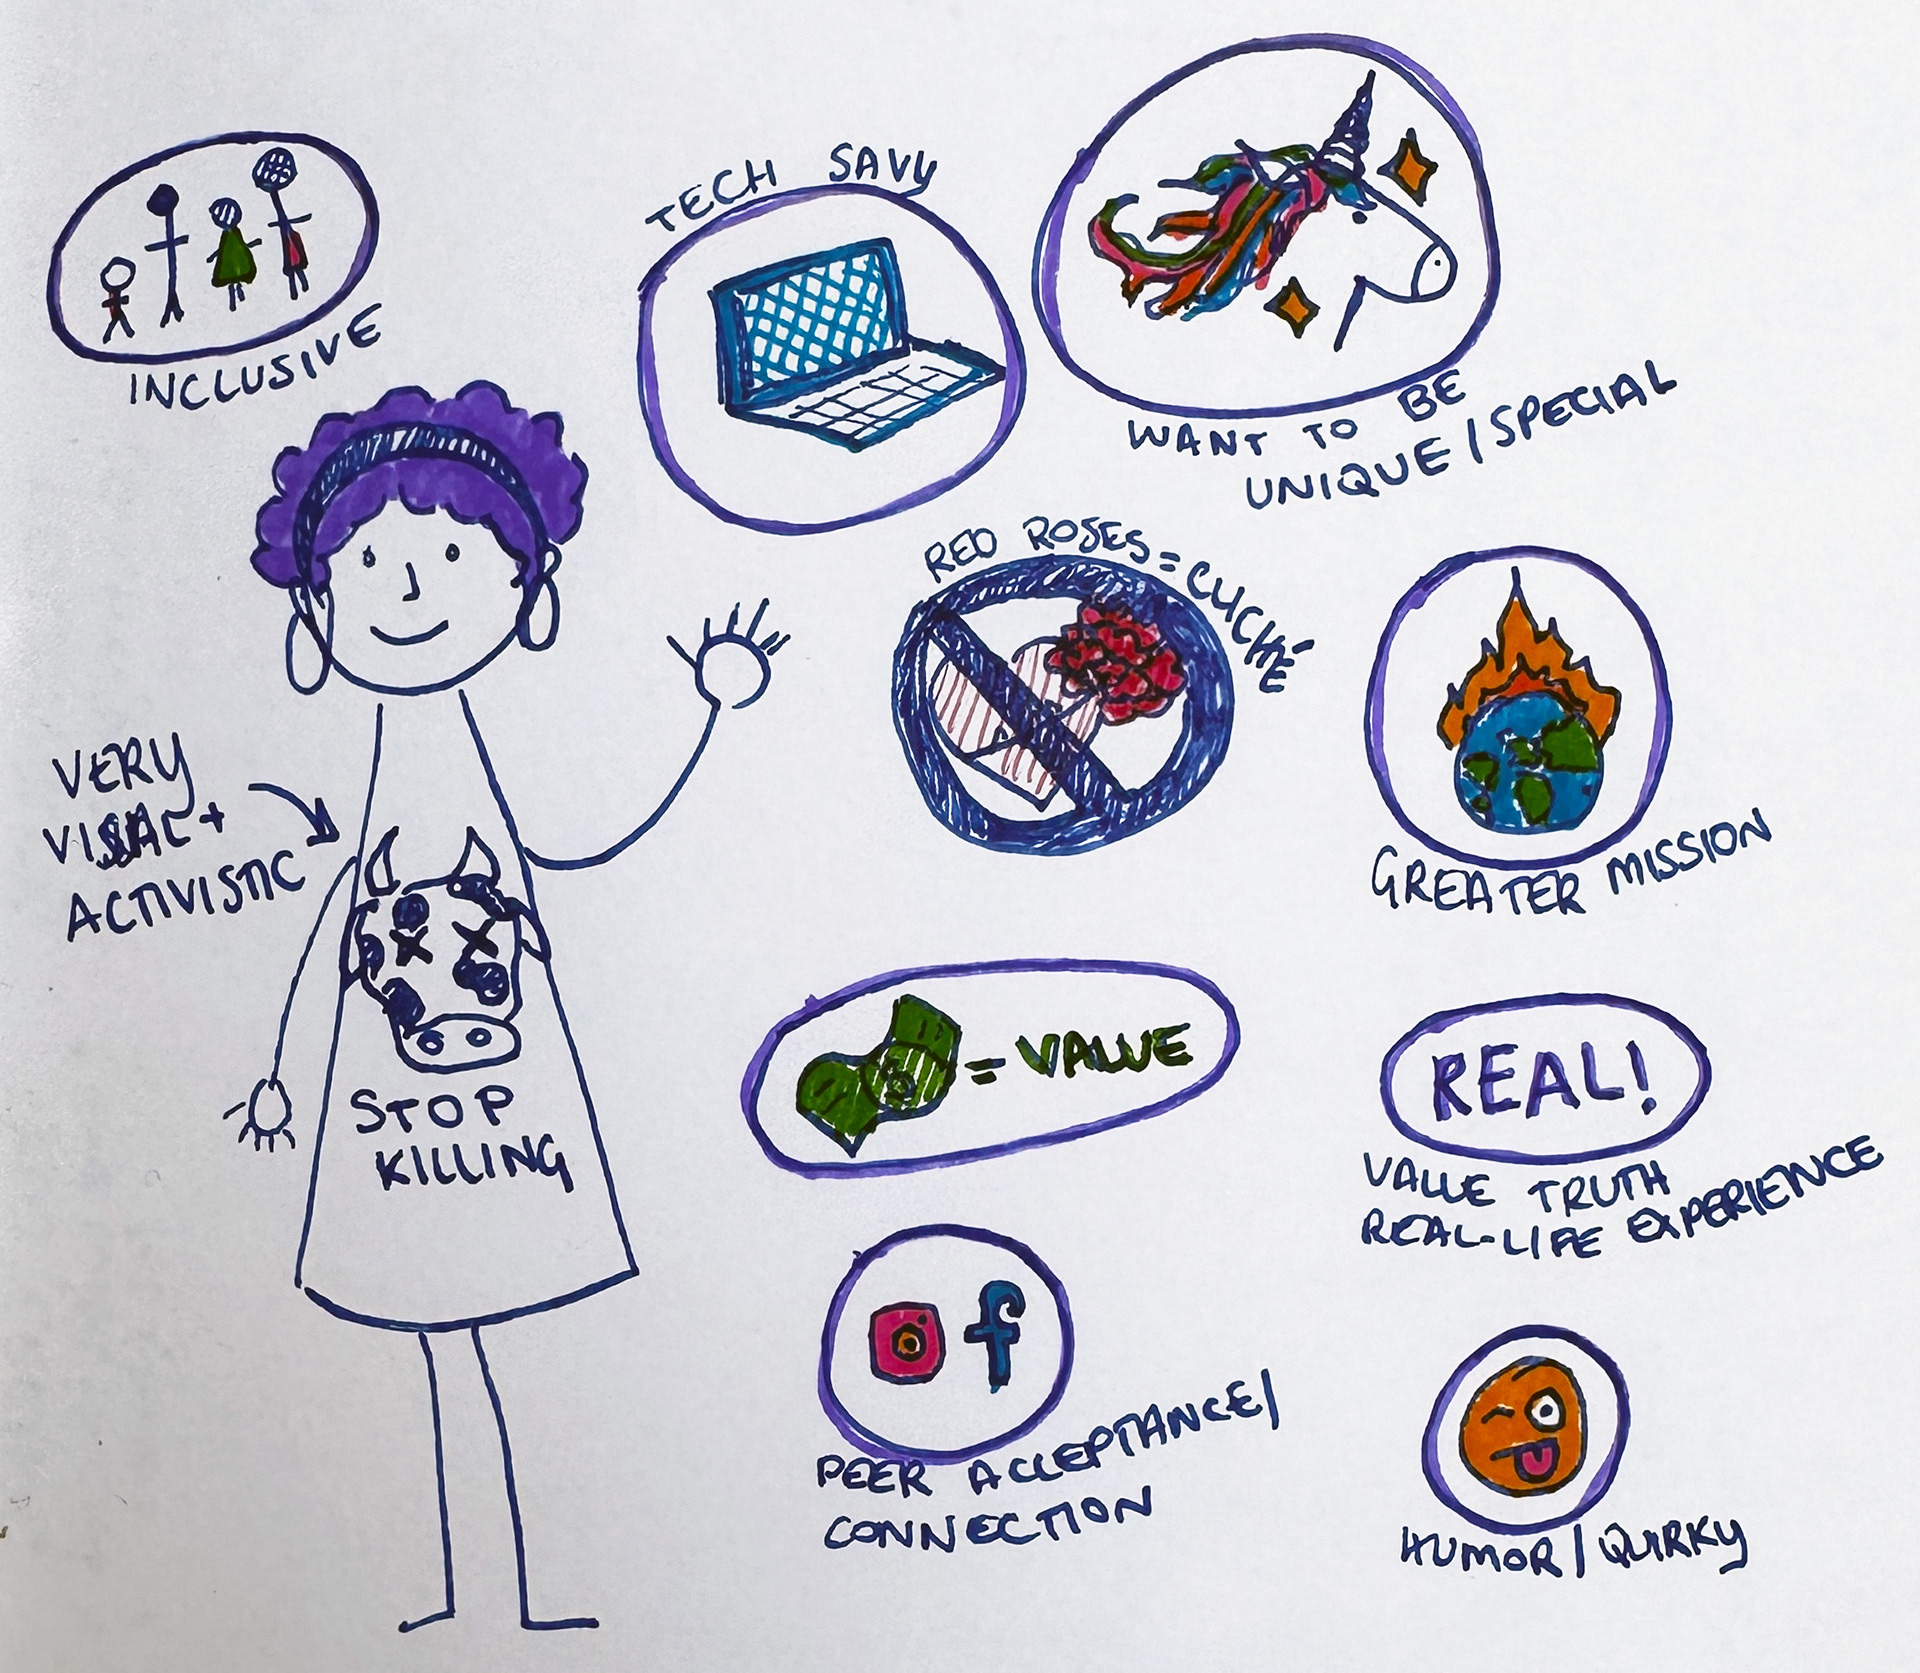 INCLUSIVE
TECH SAVY
WANT TO BE
UNIQUE/SPECIAL
RED ROSES = CLICHÉ
VERY
VISUAL +
ACTIVISTIC
STOP
KILLING
GREATER MISSION
= VALUE
REAL!
VALUE TRUTH
REAL-LIFE EXPERIENCE
f
PEER ACCEPTANCE/
CONNECTION
HUMOR/QUIRKY